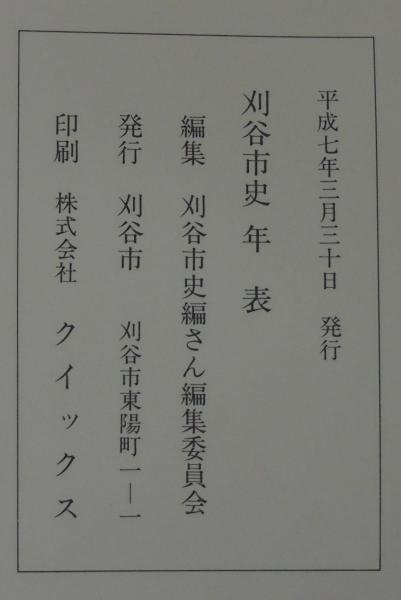 平成七年三月三十日　発行
刈谷市史年表
編集　刈谷市史編さん編集委員会
発行　刈谷市　刈谷市東陽町一―一
印刷　株式会社　クイックス